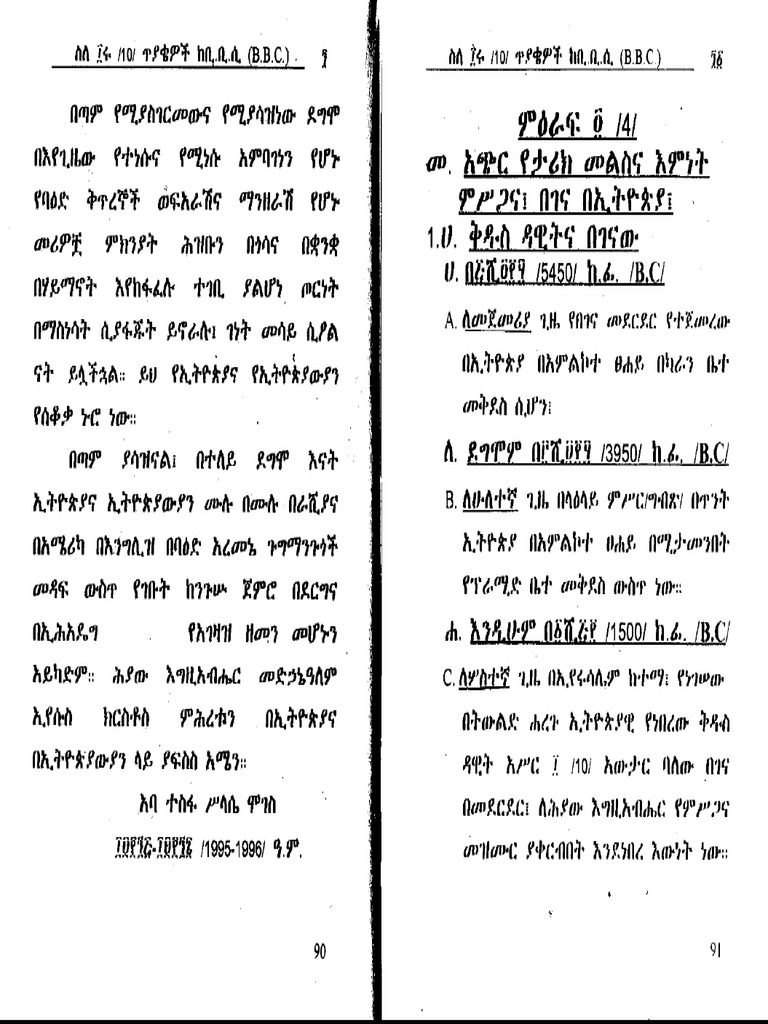 ስለ ፲ሩ /10/ ጥያቄዎች ከቢ.ቢ.ሲ (B.B.C.)
በጣም የሚያስገርመውና የሚያሳዝነው ደግሞ
በእየጊዜው የተነሱና የሚነሱ አምባገነን የሆኑ
የባዕድ ቅጥረኞች ወፍአራሽና ማንዘራሽ የሆኑ
መሪዎቿ ምክንያት ሕዝቡን በጎሳና በቋንቋ
በሃይማኖት እየከፋፈሉ ተገቢ ያልሆነ ጦርነት
በማስነሳት ሲያፋጁት ይኖራሉ፤ ገነት መሳይ ሲዖል
ናት ይሏችኋል። ይህ የኢትዮጵያና የኢትዮጵያውያን
የሰቆቃ ኑሮ ነው።
በጣም ያሳዝናል፤ በተለይ ደግሞ እናት
ኢትዮጵያና ኢትዮጵያውያን ሙሉ በሙሉ በራሺያና
በአሜሪካ በእንግሊዝ በባዕድ አረመኔ ጉግማንጉጎች
መዳፍ ውስጥ የገቡት ከንጉሡ ጀምሮ በደርግና
በኢሕአዴግ የአገዛዝ ዘመን መሆኑን
አይካድም። ሕያው እግዚአብሔር መድኃኔዓለም
ኢየሱስ ክርስቶስ ምሕረቱን በኢትዮጵያና
በኢትዮጵያውያን ላይ ያፍስስ አሜን።
አባ ተስፋ ሥላሴ ሞገስ
/1995-1996/ ዓ.ም.
90
ስለ ፲ሩ /10/ ጥያቄዎች ከቢ.ቢ.ሲ (B.B.C.) ፺፩
ምዕራፍ ፬ /4/
መ. አጭር የታሪክ መልስና እምነት
ምሥጋና፤ በገና በኢትዮጵያ፤
1.ሀ. ቅዱስ ዳዊትና በገናው
ሀ. በ፭ሺ፬፻፶ /5450/ ከ.ፊ. /B.C/
A. ለመጀመሪያ ጊዜ የበገና መደርደር የተጀመረው
በኢትዮጵያ በአምልኮተ ፀሐይ በካራን ቤተ
መቅደስ ሲሆን፤
ለ. ደግሞም በ፫ሺ፱፻፶ /3950/ ከ.ፊ. /B.C/
B. ለሁለተኛ ጊዜ በላዕላይ ምሥር/ግብጽ/ በጥንት
ኢትዮጵያ በአምልኮተ ፀሐይ በሚታመንበት
የፒራሚድ ቤተ መቅደስ ውስጥ ነው።
ሐ. እንዲሁም በ፩ሺ፭፻ /1500/ ከ.ፊ. /B.C/
C. ለሦስተኛ ጊዜ በኢየሩሳሌም ከተማ፤ የነገሠው
በትውልድ ሐረጉ ኢትዮጵያዊ የነበረው ቅዱስ
ዳዊት አሥር ፲ /10/ አውታር ባለው በገና
በመደርደር፤ ለሕያው እግዚአብሔር የምሥጋና
መዝሙር ያቀርብበት እንደነበረ እውነት ነው።
91